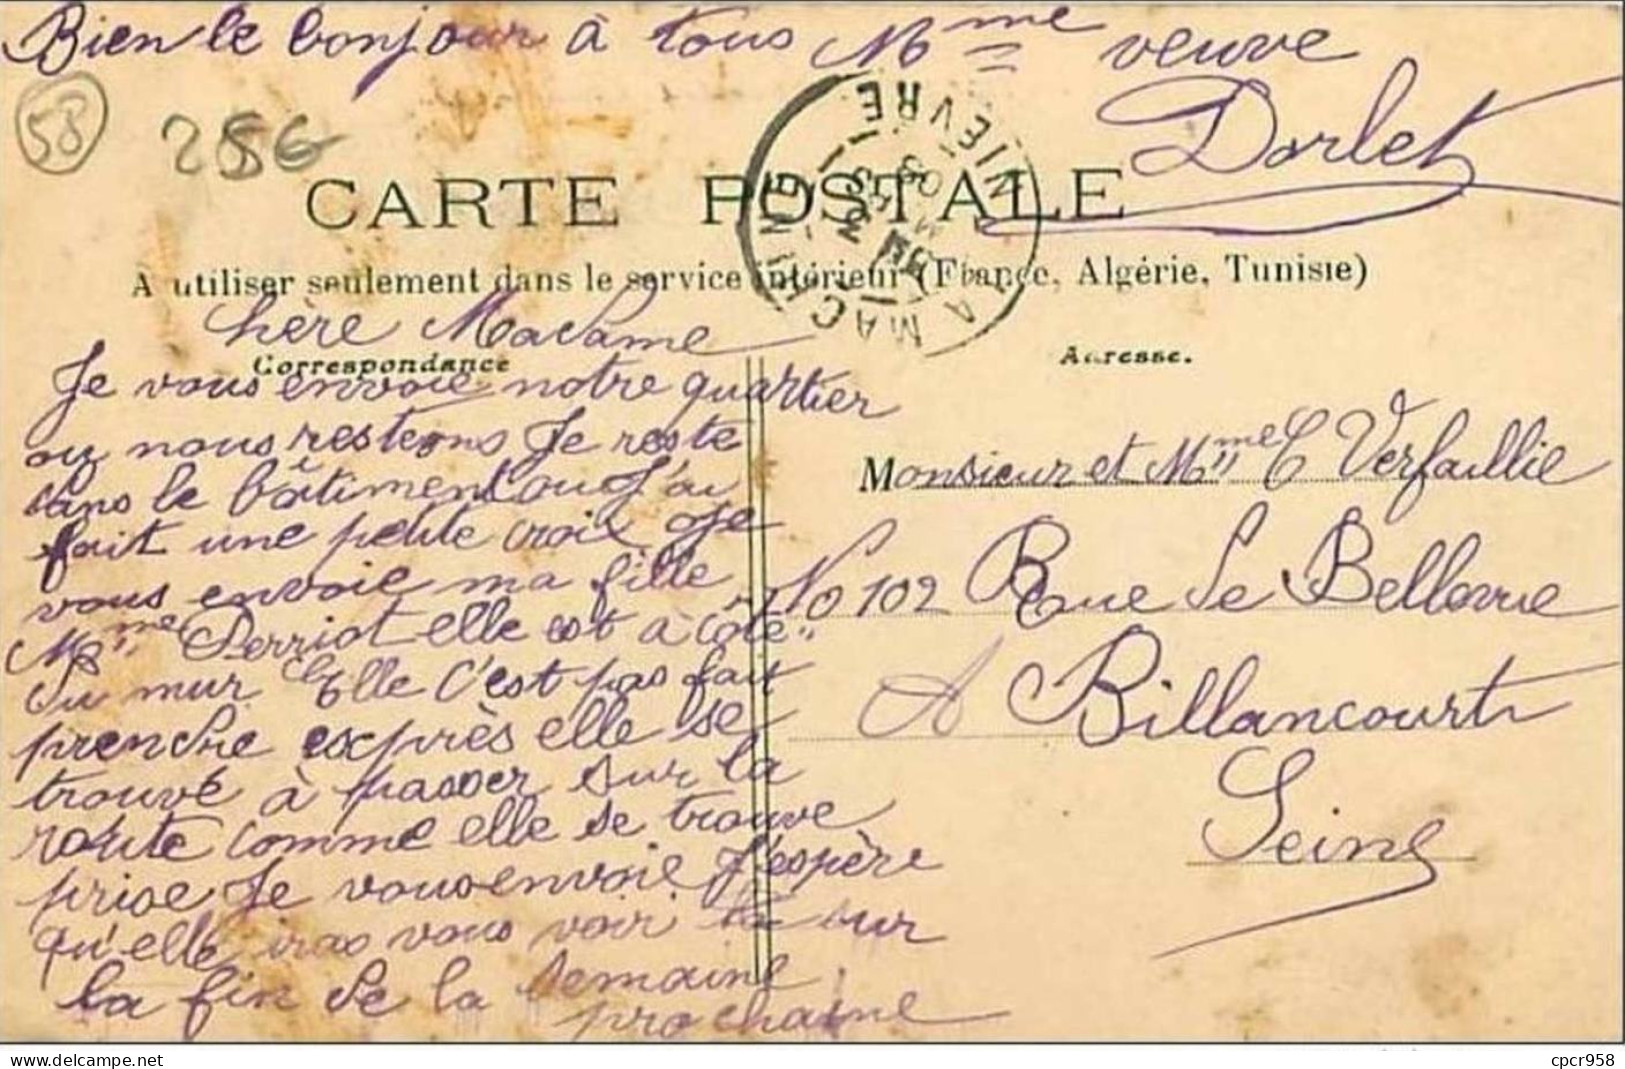 Bien le bonjour à tous Mme veuve
Dorlet
58
256
CARTE POSTALE
A utiliser seulement dans le service intérieur (France, Algérie, Tunisie)
LA MACHINE
NIÈVRE
Chère Madame
Correspondance
Je vous envoie notre quartier
ou nous restons Je reste
dans le bâtiment ou J'ai
fait une petite croix et Je
vous envoie ma fille
Mme Perriot elle est à coté
du mur Elle c'est pas fait
prendre exprès elle se
trouvé à passer sur la
route comme elle se trouve
prise Je vous envoie J'espère
qu'elle iras vous voir la sur
la fin de la semaine
prochaine
Adresse.
Monsieur et Mme C Verfaillie
No 102 Rue de Bellevue
A Billancourt
Seine
cpcr958